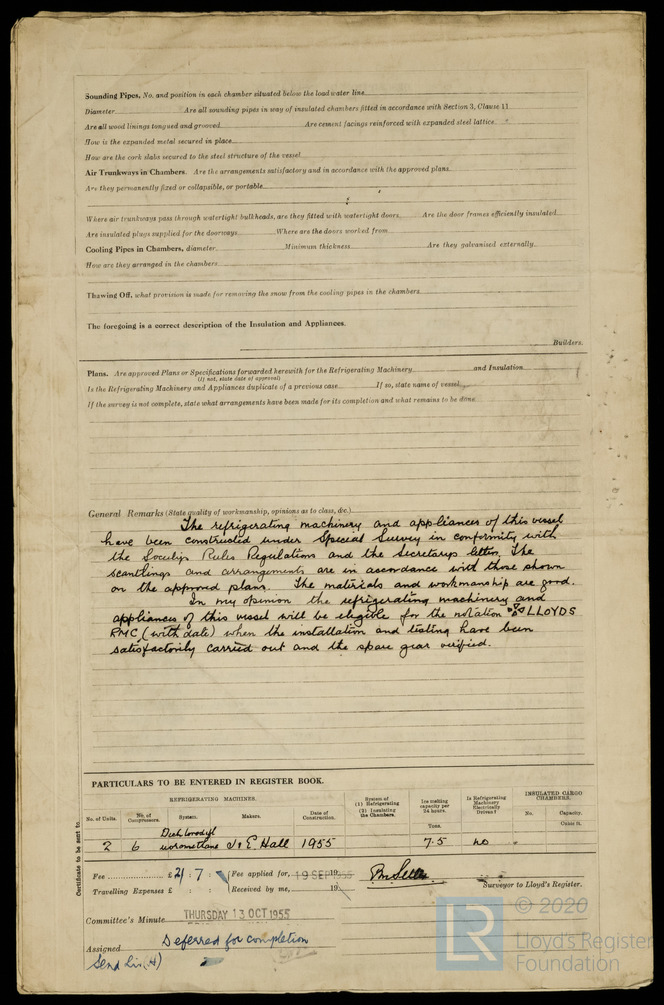 Sounding Pipes, No. and position in each chamber situated below the load water line
Diameter Are all sounding pipes in way of insulated chambers fitted in accordance with Section 3, Clause 11
Are all wood linings tongued and grooved Are cement facings reinforced with expanded steel lattice
How is the expanded metal secured in place
How are the cork slabs secured to the steel structure of the vessel
Air Trunkways in Chambers. Are the arrangements satisfactory and in accordance with the approved plans
Are they permanently fixed or collapsible, or portable
Where air trunkways pass through watertight bulkheads, are they fitted with watertight doors Are the door frames efficiently insulated
Are insulated plugs supplied for the doorways Where are the doors worked from
Cooling Pipes in Chambers, diameter Minimum thickness Are they galvanised externally
How are they arranged in the chambers
Thawing Off, what provision is made for removing the snow from the cooling pipes in the chambers
The foregoing is a correct description of the Insulation and Appliances.
Builders.
Plans. Are approved Plans or Specifications forwarded herewith for the Refrigerating Machinery and Insulation
(If not, state date of approval)
Is the Refrigerating Machinery and Appliances duplicate of a previous case If so, state name of vessel
If the survey is not complete, state what arrangements have been made for its completion and what remains to be done
General Remarks (State quality of workmanship, opinions as to class, &c.)
The refrigerating machinery and appliances of this vessel
have been constructed under Special Survey in conformity with
the Society's Rules Regulations and the Secretarys letter. The
scantlings and arrangements are in accordance with those shown
on the approved plans. The materials and workmanship are good.
In my opinion the refrigerating machinery and
appliances of this vessel will be eligible for the notation LLOYDS
RMC (with date) when the installation and testing have been
satisfactorily carried out and the spare gear verified.
PARTICULARS TO BE ENTERED IN REGISTER BOOK.
REFRIGERATING MACHINES.
System of (1) Refrigerating (2) Insulating the Chambers.
Ice melting capacity per 24 hours.
Is Refrigerating Machinery Electrically Driven?
INSULATED CARGO CHAMBERS.
No. of Units. No. of Compressors. System. Makers. Date of Construction. Tons. No. Capacity. Cubic ft.
Dichlorodifl
2 6 uoromethane J & E. Hall 1955 7.5 no
Certificate to be sent to
Fee £ 21 : 7 : Fee applied for, 19 SEP 1955 19
Travelling Expenses £ : : Received by me, 19
Surveyor to Lloyd's Register.
Committee's Minute THURSDAY 13 OCT 1955
Assigned Deferred for completion
LR © 2020
Lloyd's Register
Foundation